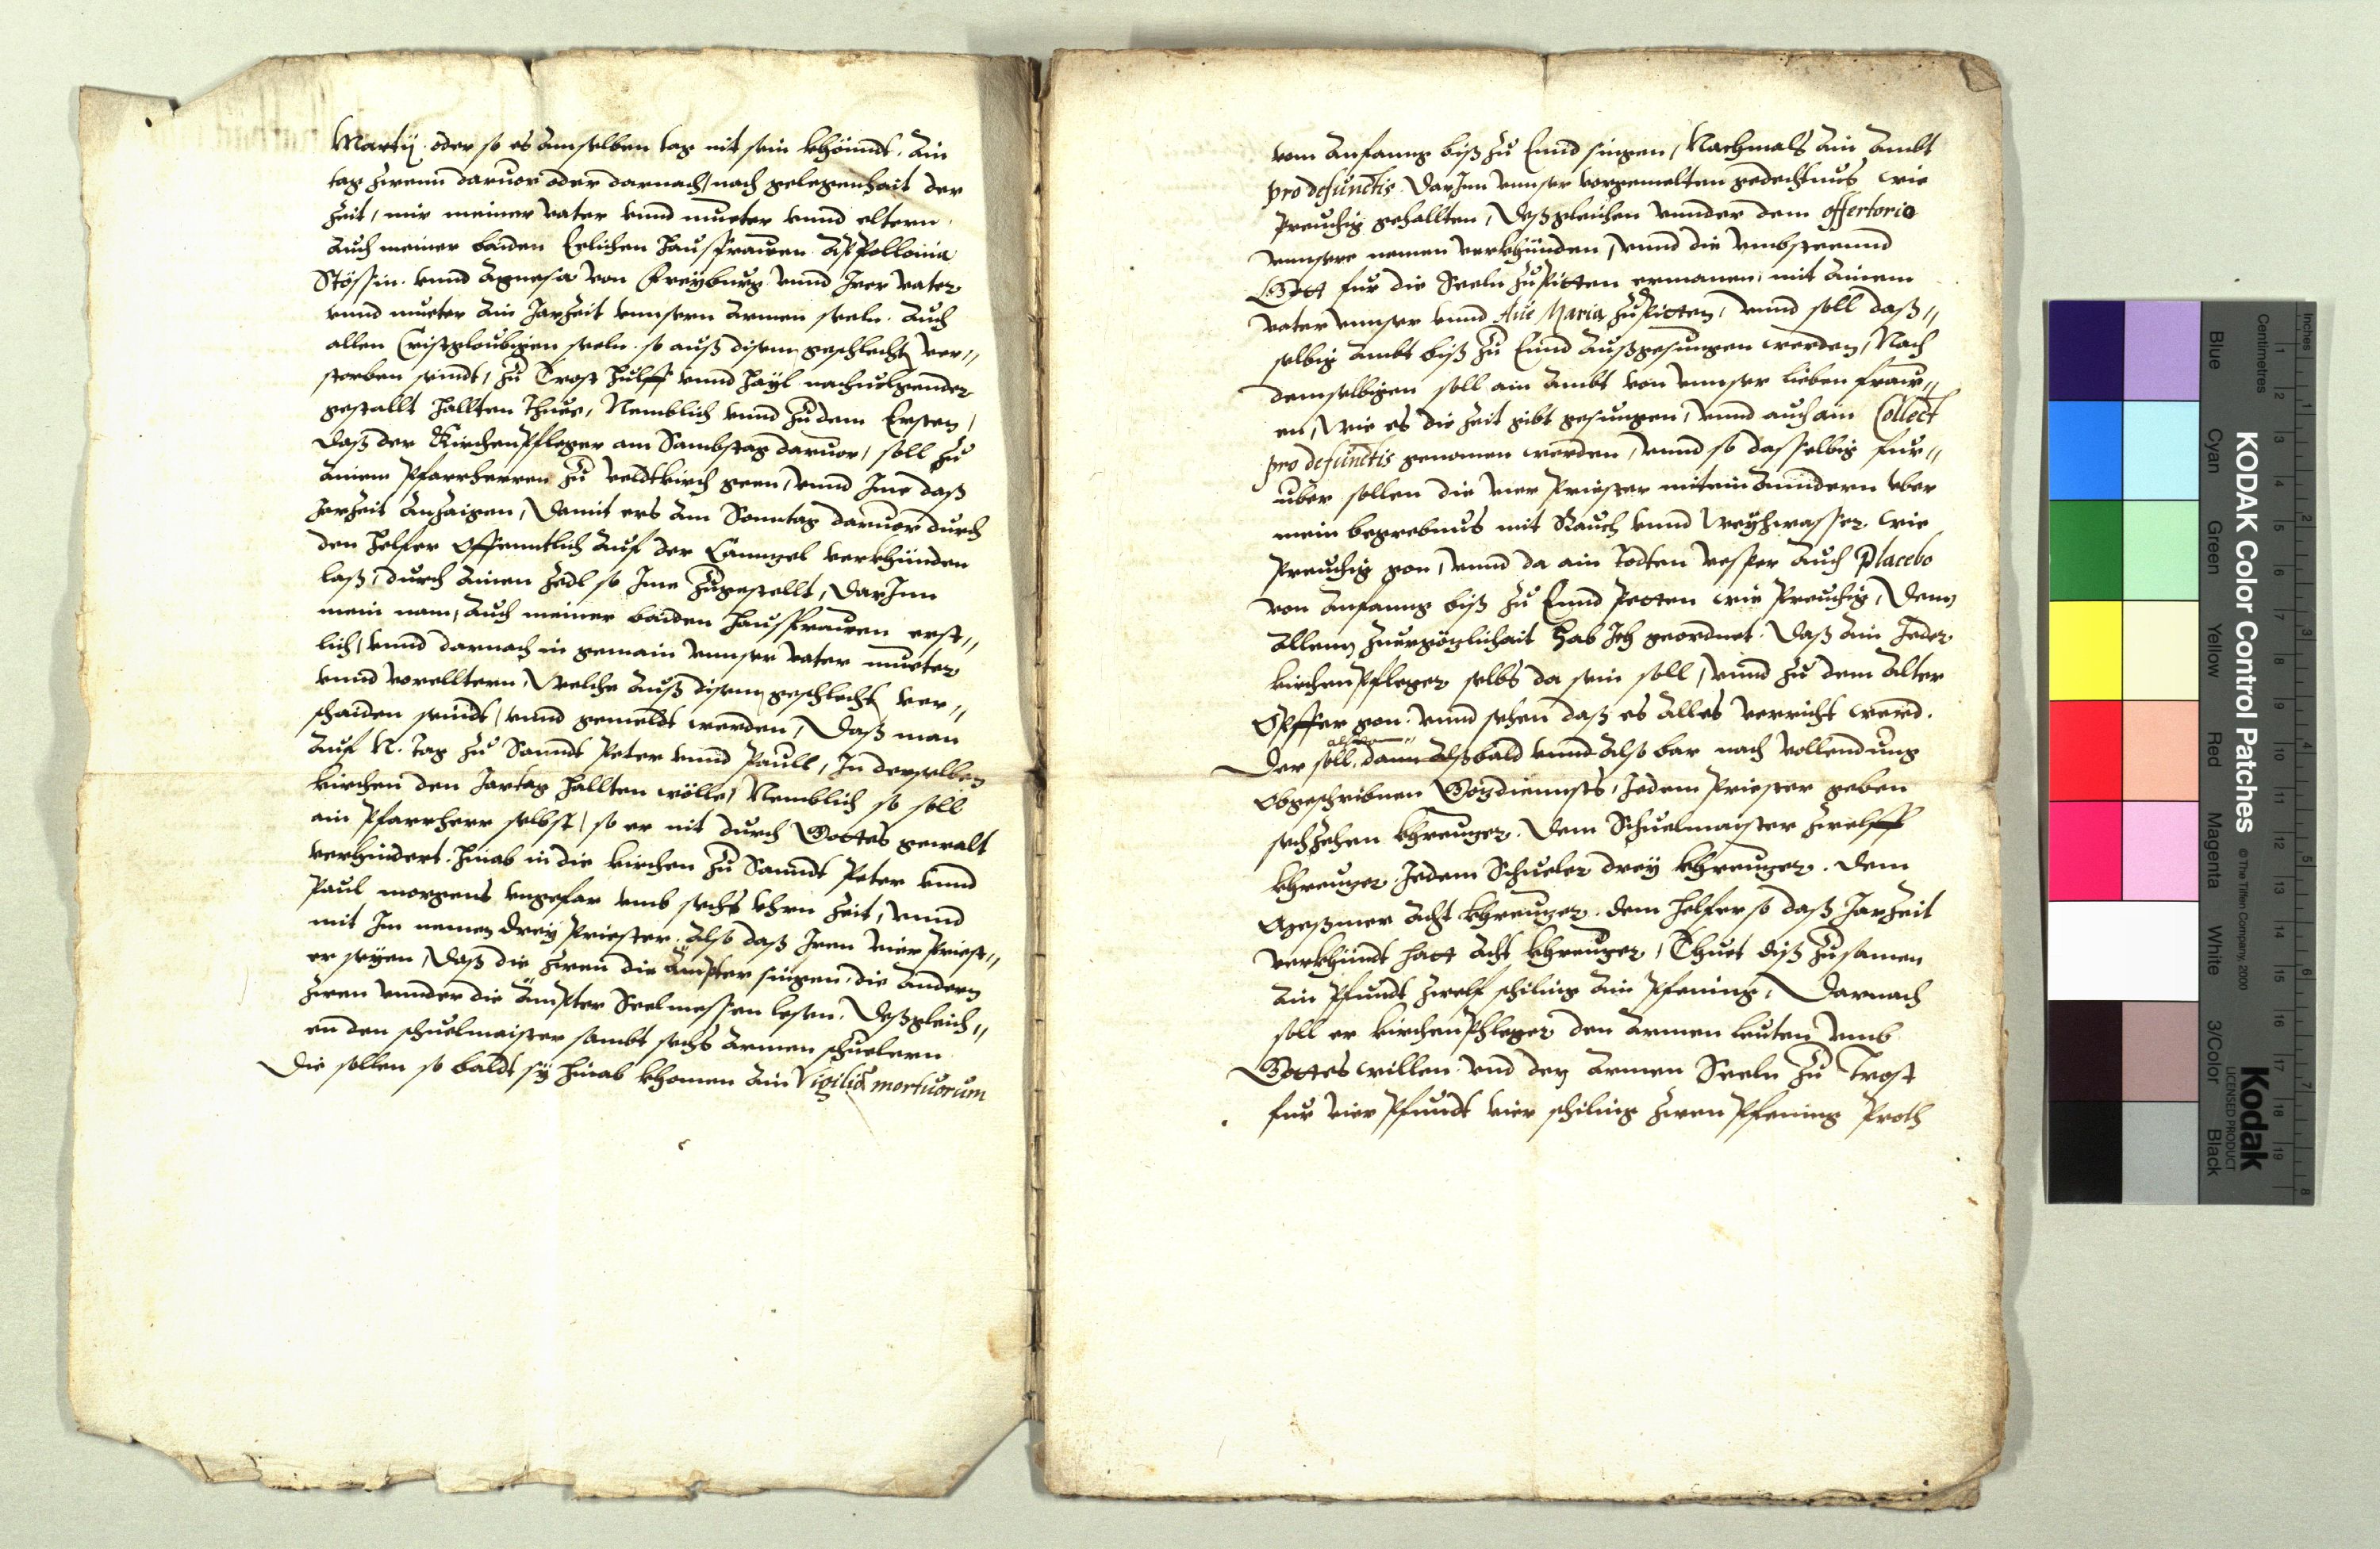 Martij. oder so es am selben tag nit sein khöundt. Ain
tag zwenn daruor oder darnach, nach gelegenhait der
Zeit, mir meiner vater vnnd mueter vnnd eltern.
auch meiner baiden Eelichen Hausfrawen. Appollonia
Stössin. vnnd Agnesa von Freyburg vnnd Irer vater
vnnd mueter Ain Jarzeit vnnsern Armen seeln. Auch
allen Cristgloubigen seeln. so auß disem geschlecht ver„
storben seindt, zu Trost Hulff vnnd Hayl nachuolgender
gestallt hallten thue, Nemblich vnnd zu dem Ersten,
daß der Kirchenpfleger am Sambstag daruor, soll zu
Ainem Pfarrherren zu veldtkirch geen, vnnd Ime daß
Jarzeit Anzaigen, Damit ers Am Sonntag daruor durch
den Helfer offenntlich Auf der Canngel verkhünden
laß, durch Ainen Zedl so Ime zugestellt, DarInn
mein nam, Auch meiner baiden Hausfrawen erst„
lich, vnnd darnach in gemain vnnser vater mueter
vnnd vorelltern, welche Auß disem geschlecht ver„
schaiden seindt, vnnd gemeldt werden, Daß man
Auf N. tag zu Sanndt Peter vnnd Paull, In derselben
kirchen den Jartag hallten wölle, Nemblich so soll
ain Pfarrherr selbst, so er nit durch Gottes gewalt
verhindert. Hinab in die kirchen zu Sanndt Peter vnnd
Paul morgens vngefar vmb sechs vhrn Zeit, vnnd
mit Im nemen drey Priester. Also daß Iren vier Priest„
er seyen, Daß die zwen die Ämpter singen, die Andern
zwen vnnder die Ämpter Seelmessen lesen. Deßgleich„
en den schuelmaister sambt sechs Armen schuelern
Die sollen so baldt sy hinab khomen Ain Vigiliä mortuorum
vom Anfanng biß zu Ennd singen, Nachmals Ain Ambt
pro defunctis. DarInn vnnser vorgemelten gedechtnus wie
Preuchig gehallten, Deßgleichen vnnder dem offertorio
vnnsere namen verkhünden, vnnd die vmbsteennd
Gott fur die Seeln zupitten ermanen, mit Ainem
vater vnnser vnnd Aue Maria zupitten, vnnd soll daß„
selbig Ambt biß zu Ennd Außgesungen werden, Nach
demselbigen soll ain Ambt von vnnser lieben fraw„
en, wie es die Zeit gibt gesungen, vnnd auch ain Collect
pro defunctis genomen werden, vnnd so dasselbig fur„
uber sollen die vier Priester miteinAnndern vber
mein begrebnus mit Rauch vnnd Weyhwasser wie
Preuchig gon, vnnd da ain todten vesper Auch Placebo
von Anfanng biß zu Ennd Petten wie Preuchig, Dem
Allem zuergözlichait hab Ich geordnet. Daß Ain Jeder
kirchenpfleger selbs da sein soll, vnnd zu dem Alter
Opffer gon. vnnd sehen daß es Alles verricht werd.
alsdann
Der soll, dann Alßbald vnnd Also bar nach vollendung
Obgeschribnen Gozdiennsts, Jedem Priester geben
sechzehen khreuzer. Dem Schuelmaister zwelff
khreuzer. Jedem Schueler drey khreuzer. Dem
Meßmer Acht khreuzer. dem Helfer so daß Jarzeit
verkhündt hatt Acht khreuzer, Thuet diß zusamen
Ain Pfundt zwelf schiling Ain Pfening. Darnach
soll er kirchenPfleger den Armen leuten vmb
Gottes willen. vnd den Armen Seeln zu Trost
fur vier Pfundt vier schiling zwen Pfening Proth
Inches
Centimetres
Blue
Cyan
Green
Yellow
Red
Magenta
White
3/Color
Black
KODAK Color Control Patches
© The Tiffen Company, 2000
Kodak
LICENSED PRODUCT